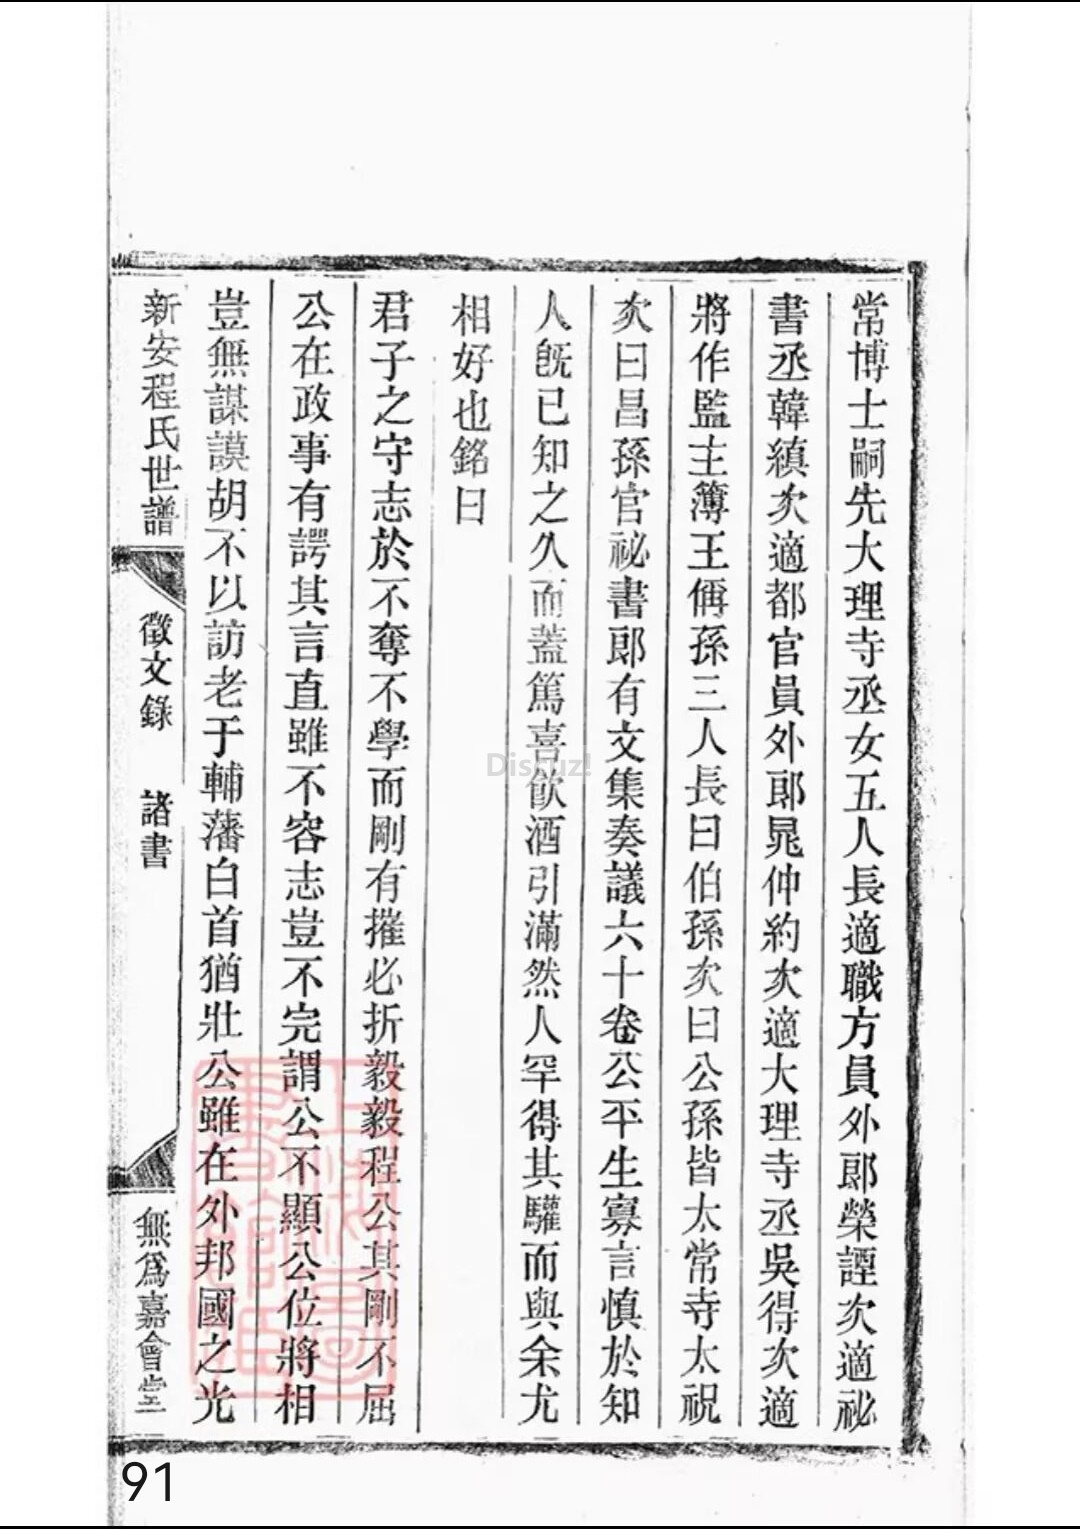 常博士嗣先大理寺丞女五人長適職方員外郎榮諲次適祕
書丞韓縝次適都官員外郎晁仲約次適大理寺丞吳得次適
將作監主簿王偁孫三人長曰伯孫次曰公孫皆太常寺太祝
次曰昌孫官祕書郎有文集奏議六十卷公平生寡言慎於知
人旣已知之久而蓋篤喜飲酒引滿然人罕得其驩而與余尤
相好也銘曰
君子之守志於不奪不學而剛有摧必折毅毅程公其剛不屈
公在政事有諤其言直雖不容志豈不完謂公不顯公位將相
豈無謀謨胡不以訪老于輔藩白首猶壯公雖在外邦國之光
新安程氏世譜 徵文錄 諸書 無為嘉會堂
Discuz!
91